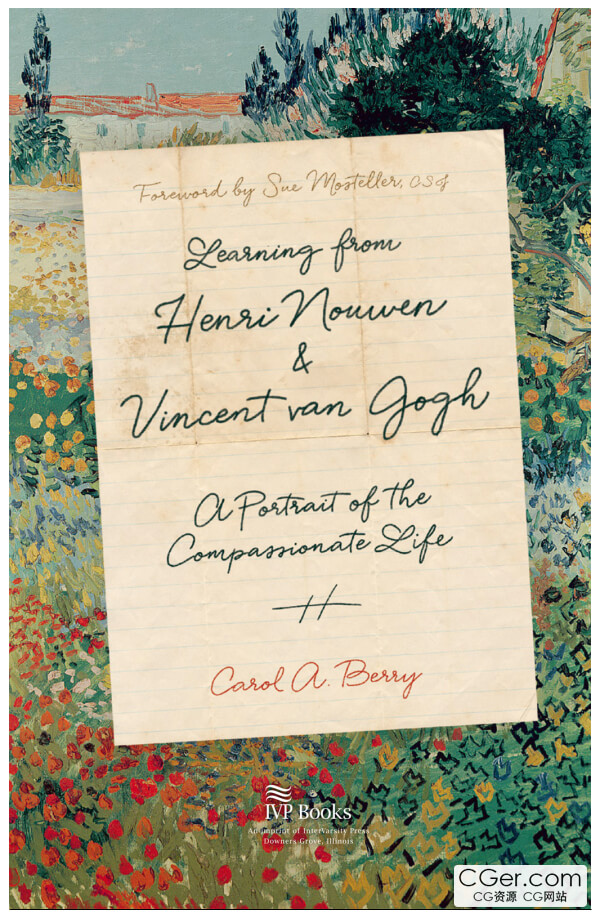 Foreword by Sue Mosteller, CSJ
Learning from
Henri Nouwen
&
Vincent van Gogh
A Portrait of the
Compassionate Life
Carol A. Berry
IVP Books
An imprint of InterVarsity Press
Downers Grove, Illinois
CGer.com
CG资源 CG网站